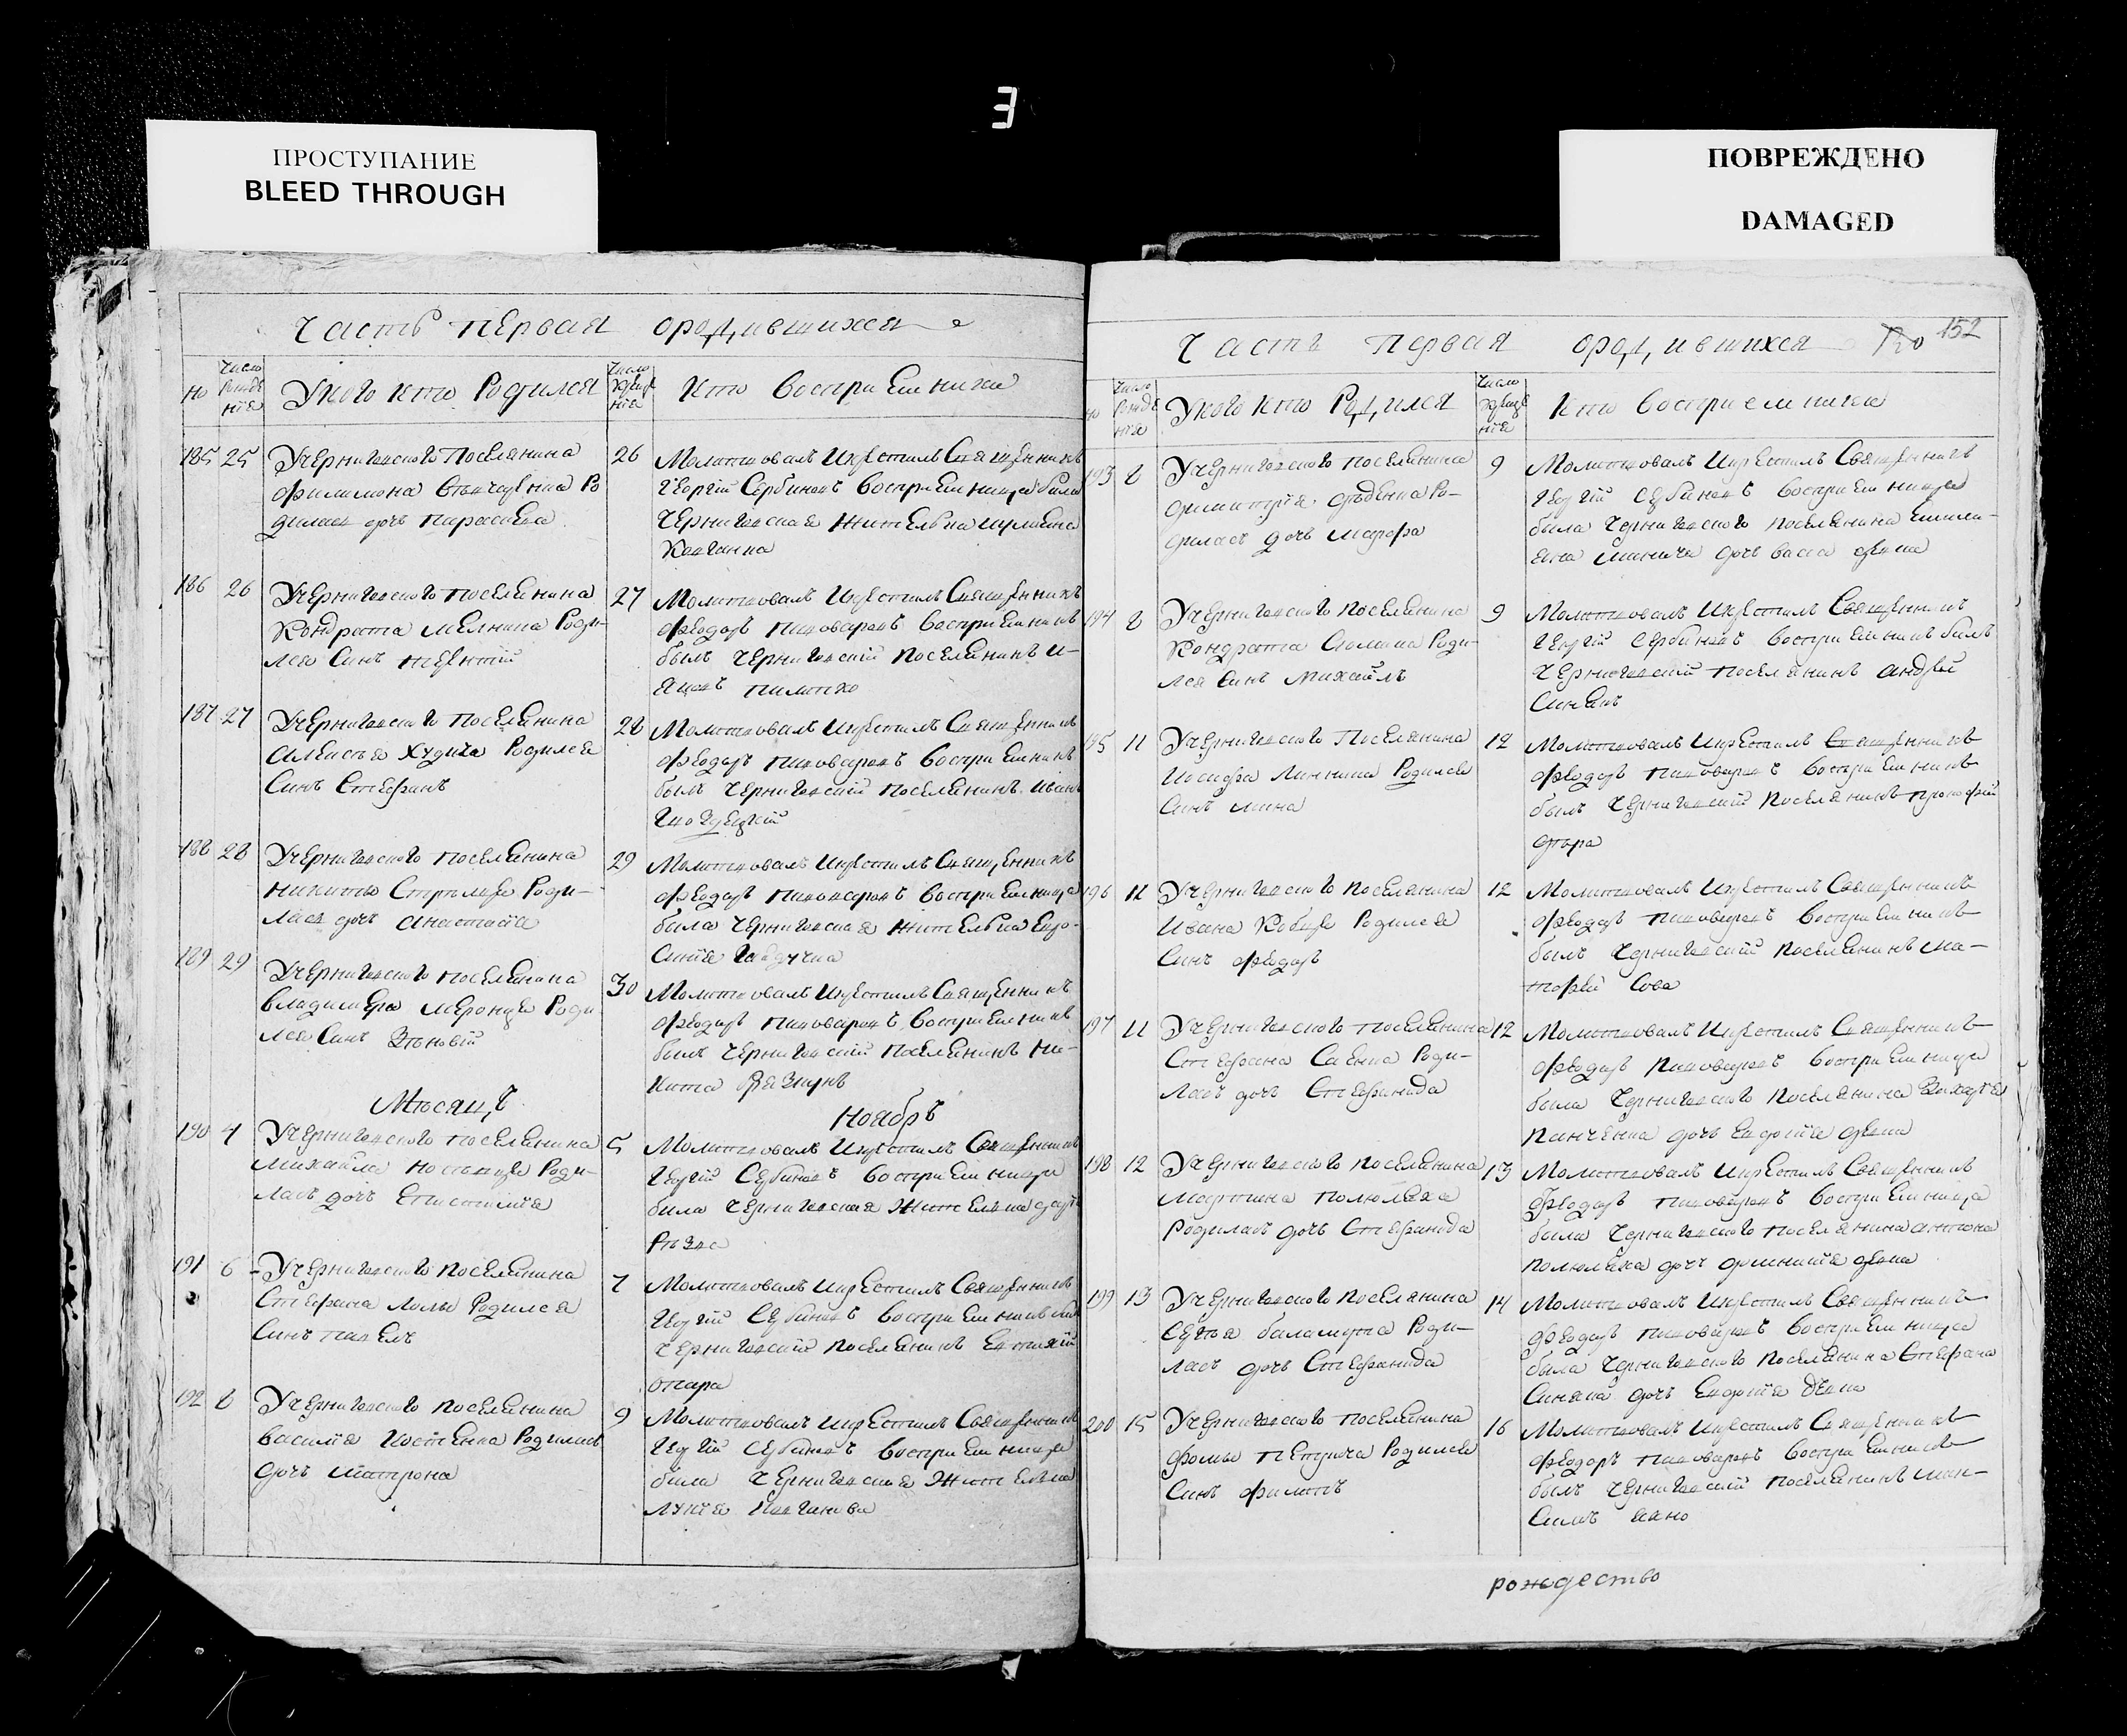 З
ПРОСТУПАНИЕ
BLEED THROUGH
ПОВРЕЖДЕНО
DAMAGED
Часть первая ородившихся
но
Число Рождения
У кого кто Родился
Число Крещения
Кто восприемники
185 25
Учерниговского Поселянина
Филимона Родилась дочь Параскева
26
Молитвовалъ Икрестилъ Священникъ
Георгій Сербиновъ Восприемница была
Черниговская жителька
186 26
Учерниговского поселянина
Кондрата Мелника Роди-
лся Синъ Терентій
27
Молитвовалъ Икрестилъ Священникъ
Феодоръ Пивоваровъ Восприемникъ
былъ Черниговскій Поселянинъ И-
яковъ Пилипко
187 27
Учерниговского поселянина
Алексея Худича Родился
Синъ Стефанъ
28
Молитвовалъ Икрестилъ Священникъ
Феодоръ Пивоваровъ Восприемникъ
былъ Черниговскій Поселянинъ Иванъ
188 28
Учерниговского поселянина
Никиты Стрельца Роди-
лась дочь Анастасія
29
Молитвовалъ Икрестилъ Священникъ
Феодоръ Пивоваровъ Восприемница
была Черниговская жителька Евро-
синія
189 29
Учерниговского поселянина
Владимера Миронца Роди
лся Синъ Зѣновій
30
Молитвовалъ Икрестилъ Священникъ
Феодоръ Пивоваровъ Восприемникъ
былъ Черниговскій Поселянинъ Ни-
кита
Мѣсяцъ Ноябръ
190 4
Учерниговского поселянина
Михайла Носенца Роди-
лась дочь Епистимія
5
Молитвовалъ Икрестилъ Священникъ
Георгій Сербиновъ Восприемница
была Черниговская жителька
191 6
Учерниговского поселянина
Стефана Лилы Родился
Синъ Павелъ
7
Молитвовалъ Икрестилъ Священникъ
Георгій Сербиновъ Восприемникъ былъ
Черниговскій поселянинъ Евтихій
Опара
192 8
Учерниговского поселянина
Василія Костенка Родилась
дочь Матрона
9
Молитвовалъ Икрестилъ Священникъ
Георгій Сербиновъ Восприемница
была Черниговская жителька
Лукія
Часть Первая ородившихся
152
но
Число Рождения
У кого кто Родился
Число Крещения
Кто восприемники
193 8
Учерниговского поселянина
Димитрія Дѣденка Ро-
дилась дочь Марфа
9
Молитвовалъ Икрестилъ Священникъ
Георгій Сербиновъ Восприемница
была Черниговского поселянина Емили-
яна Минича дочь Васса девка
194 8
Учерниговского поселянина
Кондрата Роди-
лся Синъ Михайлъ
9
Молитвовалъ Икрестилъ Священникъ
Георгій Сербиновъ Восприемникъ былъ
Черниговскій поселянинъ Андрей
Синякъ
195 11
Учерниговского Поселянина
Иосифа Линника Родился
Синъ Мина
12
Молитвовалъ Икрестилъ Священникъ
Феодоръ Пивоваровъ Восприемникъ
былъ Черниговскій Поселянинъ Прокофій
Опара
196 11
Учерниговского поселянина
Ивана Кобца Родился
Синъ Феодоръ
12
Молитвовалъ Икрестилъ Священникъ
Феодоръ Пивоваровъ Восприемникъ
былъ Черниговскій поселянинъ Ма-
тофей Сова
197 11
Учерниговского поселянина
Стефана Саенка Роди-
лась дочь Стефанида
12
Молитвовалъ Икрестилъ Священникъ
Феодоръ Пивоваровъ Восприемница
была Черниговского поселянина Захарія
Панченка дочь Евдокія девка
198 12
Учерниговского поселянина
Мартина Полюляха
Родилась дочь Стефанида
13
Молитвовалъ Икрестилъ Священникъ
Феодоръ Пивоваровъ Восприемница
была Черниговского поселянина Антона
Полюляха дочь девка
199 13
Учерниговского поселянина
Сергея Баламута Роди-
лась дочь Стефанида
14
Молитвовалъ Икрестилъ Священникъ
Феодоръ Пивоваровъ Восприемница
была Черниговского поселянина Стефана
Синяка дочь Евдокія девка
200 15
Учерниговского поселянина
Фомы Петрича Родился
Синъ Филипъ
16
Молитвовалъ Икрестилъ Священникъ
Феодоръ Пивоваровъ Восприемникъ
былъ Черниговскій поселянинъ Мак-
симъ
рождество